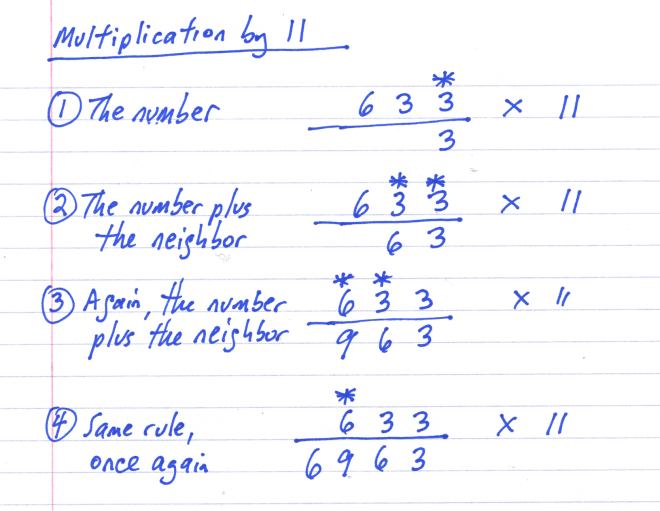 Multiplication by 11
*
① The number 6 3 3 × 11
3
* *
② The number plus 6 3 3 × 11
the neighbor 6 3
* *
③ Again, the number 6 3 3 × 11
plus the neighbor 9 6 3
*
④ Same rule, 6 3 3 × 11
once again 6 9 6 3